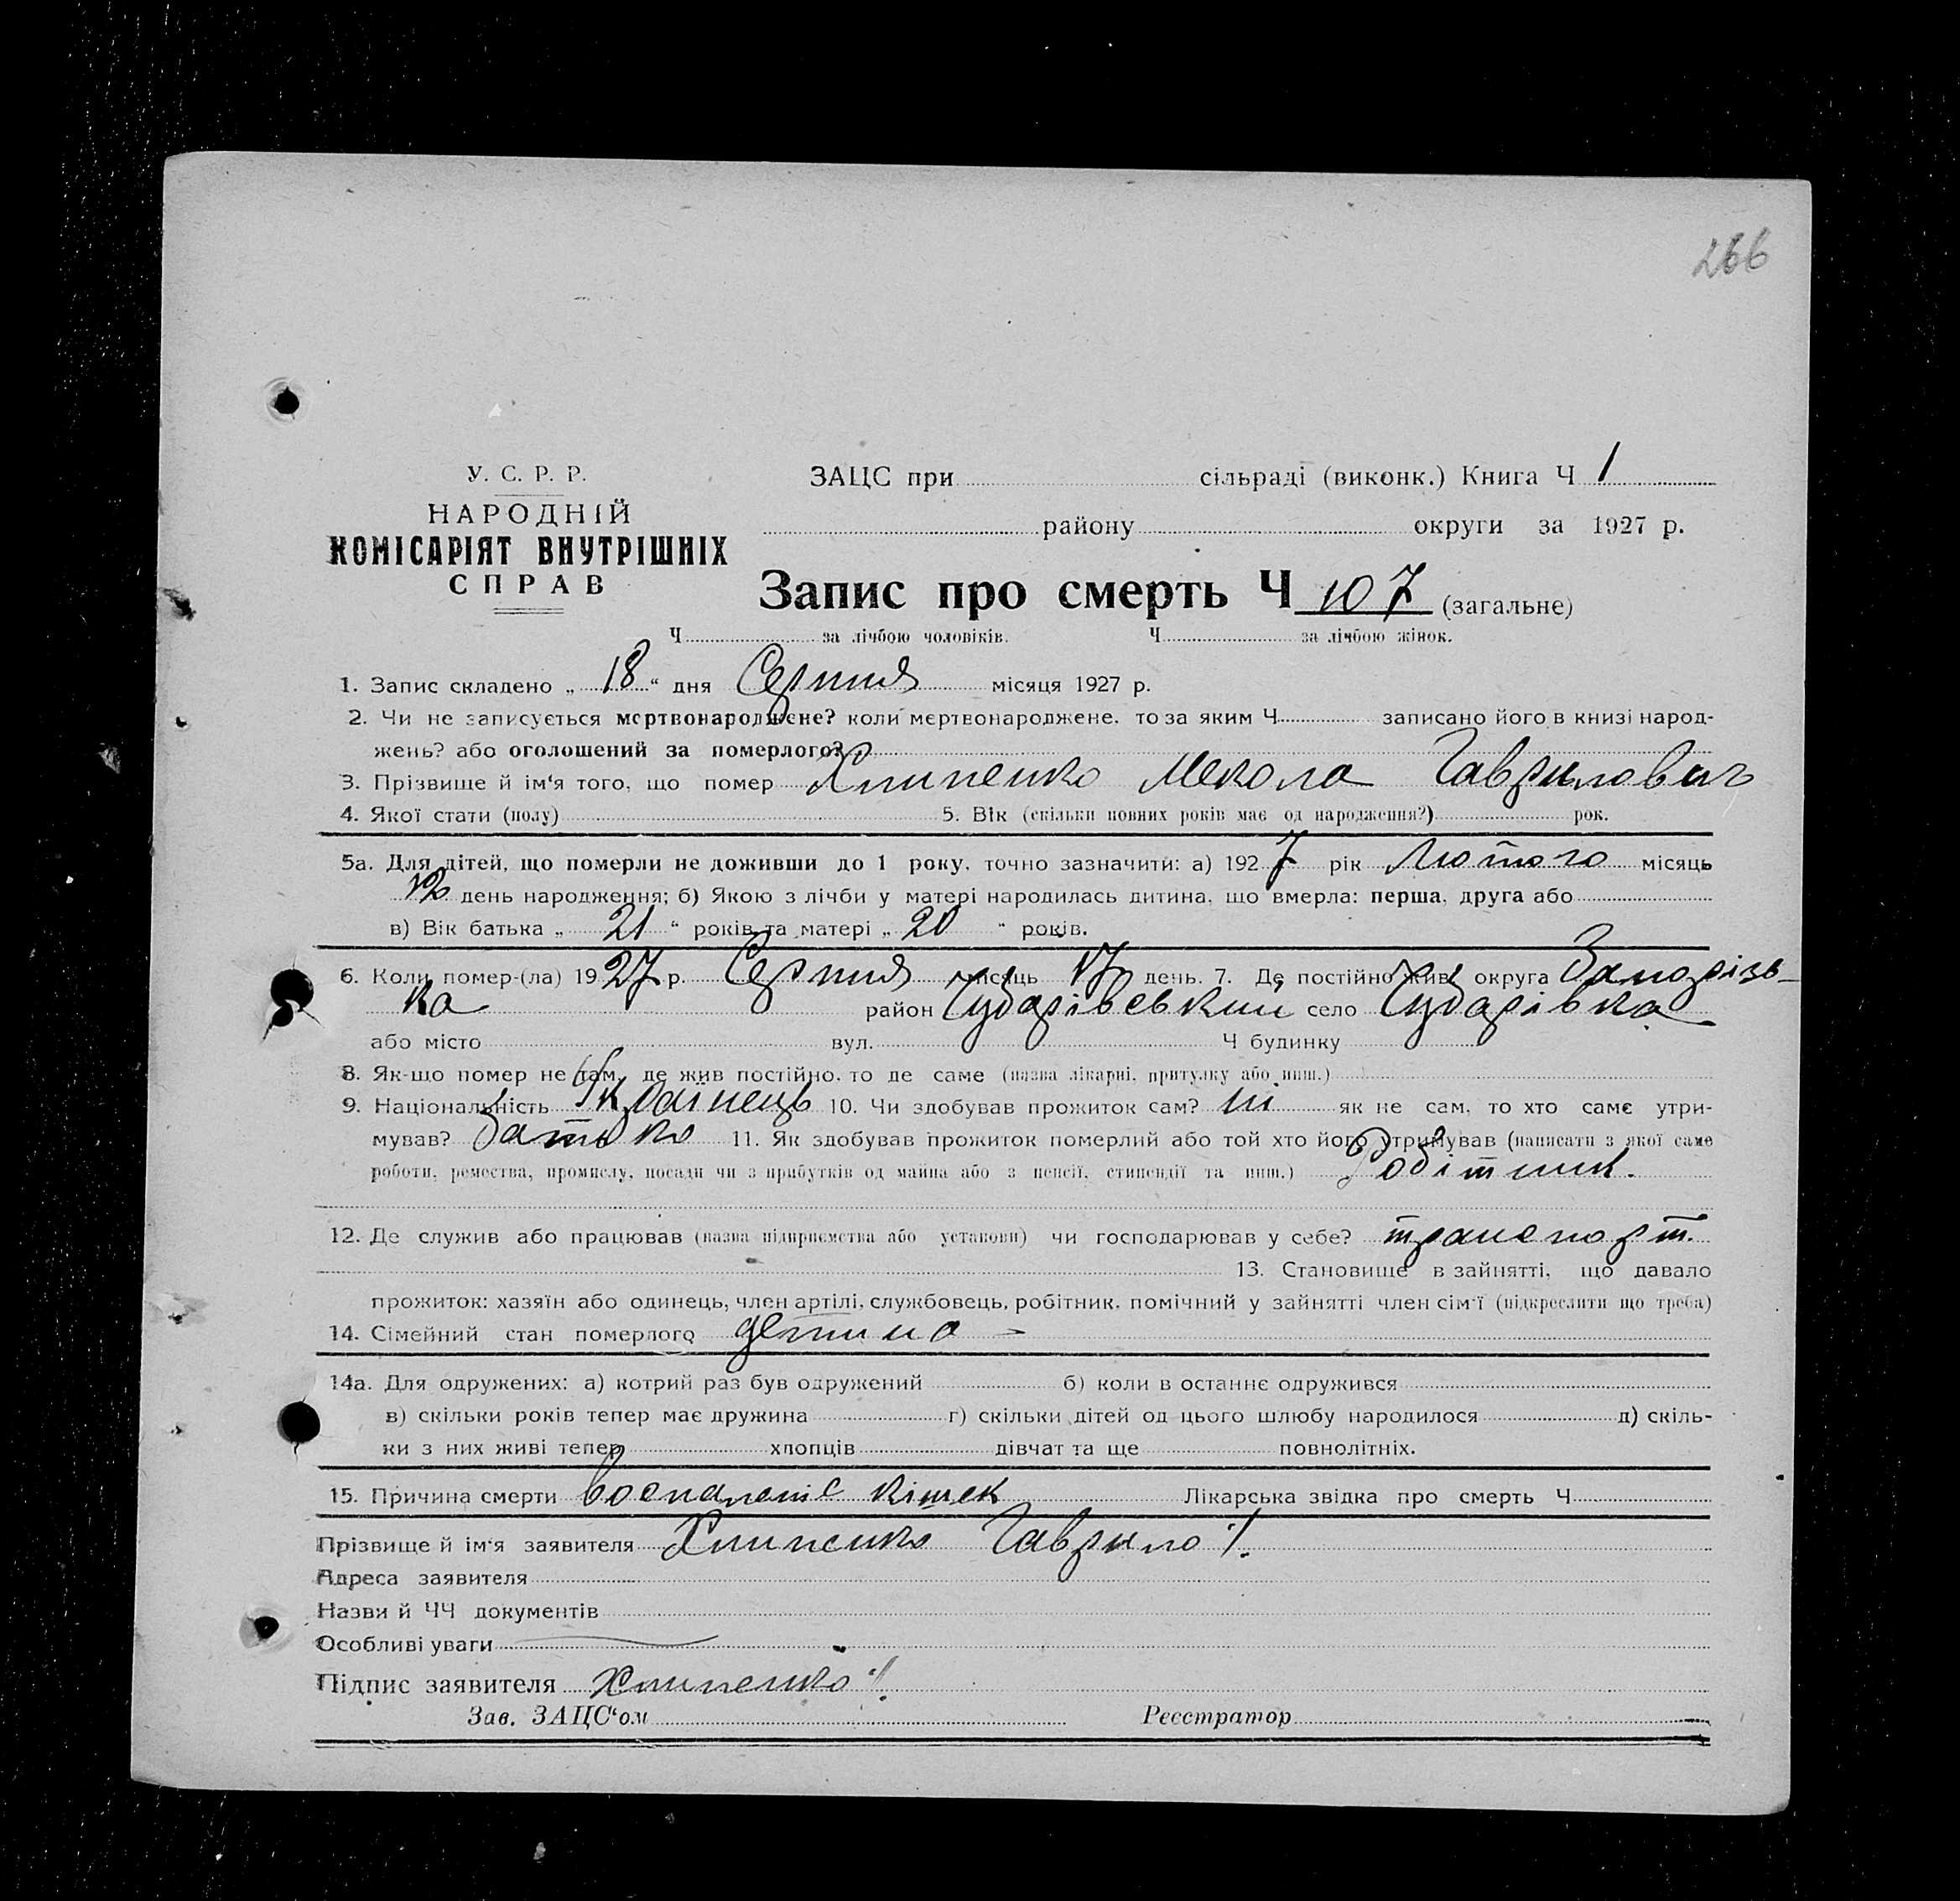 266
У. С. Р. Р.
НАРОДНІЙ
КОМІСАРІЯТ ВНУТРІШНІХ
СПРАВ
ЗАЦС при сільраді (виконк.) Книга Ч 1
району округи за 1927 р.
Запис про смерть Ч 107 (загальне)
Ч за лічбою чоловіків. Ч за лічбою жінок.
1. Запис складено „ 18 “ дня Серпня місяця 1927 р.
2. Чи не записується мертвонароджене? коли мертвонароджене, то за яким Ч записано його в книзі народ-
жень? або оголошений за померлого?
3. Прізвище й ім‘я того, що помер Хлипенко Микола Гаврилович
4. Якої стати (полу) 5. Вік (скільки повних років має од народження?) рок.
5а. Для дітей, що померли не доживши до 1 року, точно зазначити: а) 1927 рік Лютого місяць
день народження; б) Якою з лічби у матері народилась дитина, що вмерла: перша, друга або
в) Вік батька „ 21 “ років та матері „ 20 “ років.
6. Коли помер-(ла) 1927 р. Серпня місяць 17 день. 7. Де постійно жив округа Запорізь-
ка район Чубарівський село Чубарівка
або місто вул. Ч будинку
8. Як-що помер не там, де жив постійно, то де саме (назва лікарні, притулку або инш.)
9. Національність Українець 10. Чи здобував прожиток сам? ні як не сам, то хто саме утри-
мував? Батько 11. Як здобував прожиток померлий або той хто його утримував (написати з якої саме
роботи, ремества, промислу, посади чи з прибутків од майна або з пенсії, стипендії та инш.) Робітник.
12. Де служив або працював (назва підприємства або установи) чи господарював у себе? транспорт.
13. Становище в зайнятті, що давало
прожиток: хазяїн або одинець, член артілі, службовець, робітник, помічний у зайнятті член сім‘ї (підкреслити що треба)
14. Сімейний стан померлого детина -
14а. Для одружених: а) котрий раз був одружений б) коли в останнє одружився
в) скільки років тепер має дружина г) скільки дітей од цього шлюбу народилося д) скіль-
ки з них живі тепер хлопців дівчат та ще повнолітніх.
15. Причина смерти воспаленіє кішек Лікарська звідка про смерть Ч
Прізвище й ім‘я заявителя Хлипенко Гаврило
Адреса заявителя
Назви й ЧЧ документів
Особливі уваги
Підпис заявителя Хлипенко
Зав. ЗАЦС‘ом Реєстратор